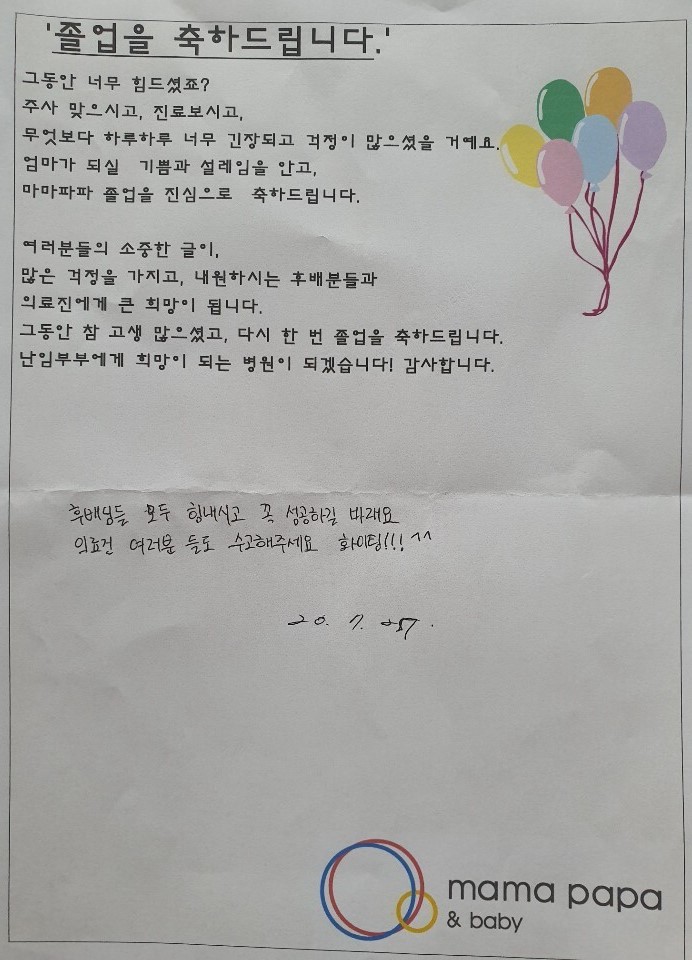 '졸업을 축하드립니다.'
그동안 너무 힘드셨죠?
주사 맞으시고, 진료보시고,
무엇보다 하루하루 너무 긴장되고 걱정이 많으셨을 거예요.
엄마가 되실 기쁨과 설레임을 안고,
마마파파 졸업을 진심으로 축하드립니다.
여러분들의 소중한 글이,
많은 걱정을 가지고, 내원하시는 후배분들과
의료진에게 큰 희망이 됩니다.
그동안 참 고생 많으셨고, 다시 한 번 졸업을 축하드립니다.
난임부부에게 희망이 되는 병원이 되겠습니다! 감사합니다.
후배님들 모두 힘내시고 꼭 성공하길 바래요
의료건 여러분 들도 수고해주세요 화이팅!!! ^^
20. 7.
mama papa
& baby